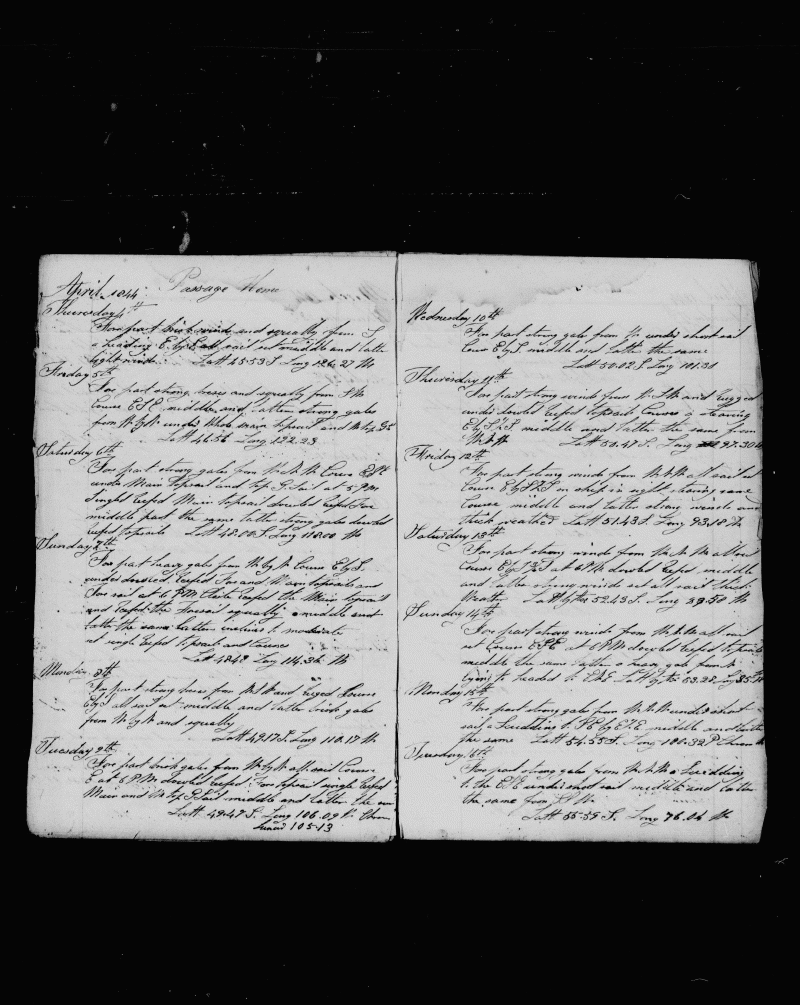 April 1844 Passage Home
Thursday 4th
Fore part brisk winds and squally from S
a heading E by S all sail set middle and latter
light winds Latt 45-53 S Long 126-27 W
Friday 5th
Fore part strong breeses and squally from SW
Course ESE middle and latter strong gales
from W by N under Main topsail and
Latt 46-56 Long 122-23
Saturday 6th
Fore part strong gales from W.N.W. Course
under Main topsail and top G. Sail at 5 PM
Singld Reefed Main topsail doubled Reefed Fore
middle part the same latter strong gales doubled
Reefed topsails Latt 48-00 S. Long 118-00 W
Sunday 7th
Fore part heavy gales from W by N Course E by S
under doubled Reefed Fore and Main topsails and
Fore sail at 6 PM Close Reefed the Main topsail
and Reefed the Foresail squally middle and
latter the same latter inclines to moderate
set single Reefed topsails and Courses
Latt 48-48 Long 114-36 W
Monday 8th
Fore part strong breeses from and Ruged Course
E by S all sail set middle and latter brisk gales
from W by N and squally
Latt 49-17 S. Long 110-17 W
Tuesday 9th
Fore part brisk gales from W by N all sail Course
E at 6 P.M. doubled Reefed Fore topsail single Reefed
Main and top G. Sail middle and latter the
Latt 49-47 S. Long 106-09 Chron
Lunar 105-13
Wednesday 10th
Fore part strong gales from W under short sail
Course E by S middle and latter the same
Latt 50-02 S Long 101-30
Thursday 11th
Fore part strong winds from W.S.W and rugged
under doubled Reefed topsails Courses a steering
E by S middle and latter the same from
Latt 50-47 S. Long 97-30 W
Friday 12th
Fore part strong winds from W.N.W all sail set
Course E by S a ship in sight steering same
Course middle and latter strong winds and
thick weather Latt 51-43 S. Long 93-18 W
Saturday 13th
Fore part strong winds from W.N.W all sail
Course at 6 P.M. doubled Reefed middle
and latter strong winds set all sail thick
Weath Latt by 52-43 S. Long 58 W
Sunday 14th
Fore part strong winds from W.N.W all sail
set Course ESE at 6 PM doubled Reefed topsails
middle the same latter a heavy gale from N
Latt by 53-28 Long
Monday 15th
Fore part strong gales from W.N.W under short
sail a Scudding middle and latt
the same Latt 54-55 S. Long Chron
Tuesday 16th
Fore part strong gales from W.N.W a Scudding
to the ESE under short sail middle and latter
the same from
Latt 55-59 S. Long 76-04 W